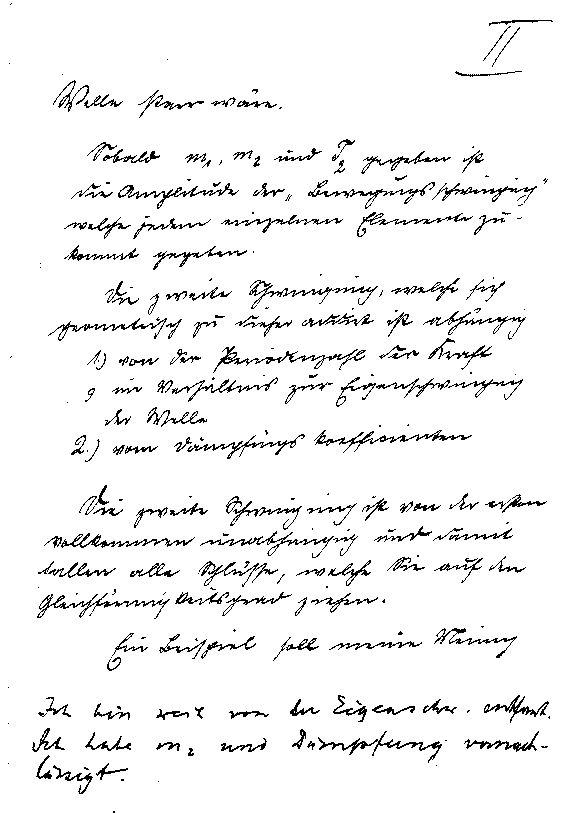 II
Welle starr wäre.
Sobald m₁, m₂ und T₂ gegeben ist
die Amplitude der „Bewegungsschwingung"
welche jedem einzelnen Elemente zu-
kommt gegeben.
Die zweite Schwingung, welche sich
geometrisch zu dieser addirt ist abhängig
1.) von der Periodenzahl der Kraft
im Verhältnis zur Eigenschwingung
der Welle
2.) vom Dämpfungskoefficienten
Die zweite Schwingung ist von der ersten
vollkommen unabhängig und damit
fallen alle Schlüsse, welche Sie auf den
Gleichförmigkeitsgrad ziehen.
Ein Beispiel soll meine Meinung
Ich bin weit von der Eigenschw. entfernt.
Ich habe m₂ und Dämpfung vernach-
lässigt.